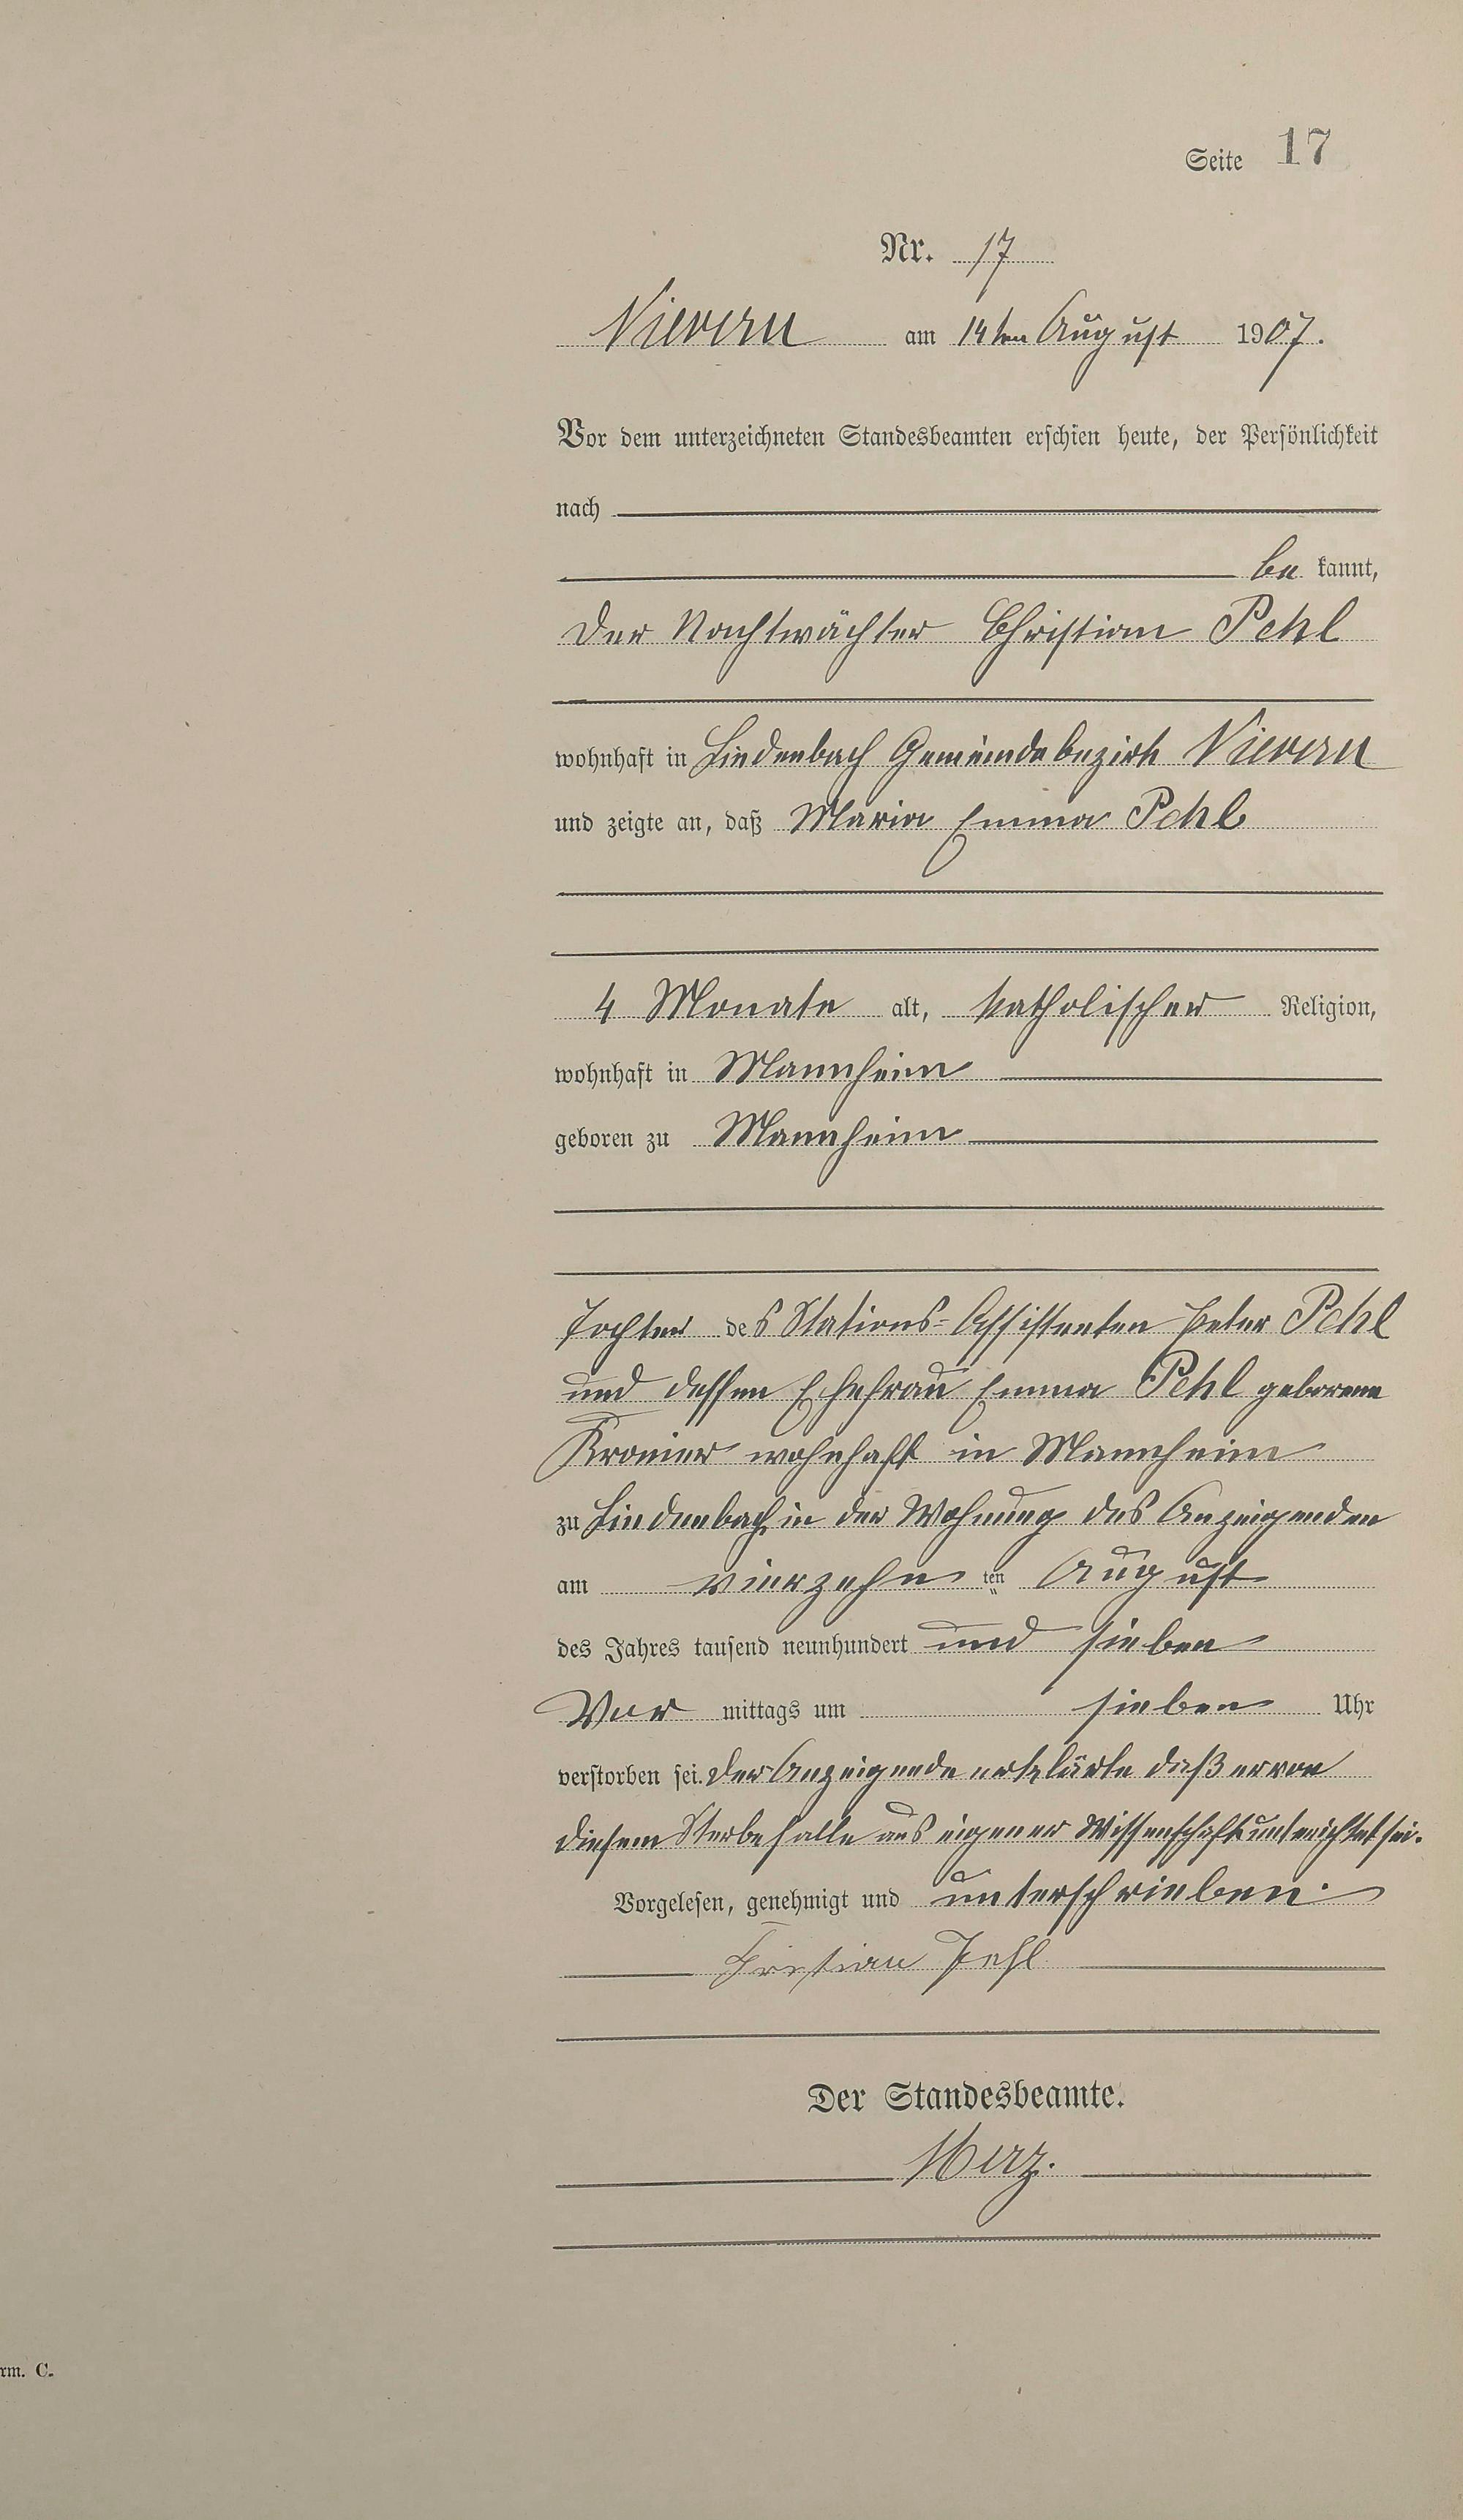 Seite 17
Nr. 17
Nievern am 14ten August 1907.
Vor dem unterzeichneten Standesbeamten erschien heute, der Persönlichkeit
nach
be kannt,
Der Nachtwächter Christian Pehl
wohnhaft in Lindenbach Gemeindebezirk Nievern
und zeigte an, daß Maria Emma Pehl
4 Monate alt, katholischer Religion,
wohnhaft in Mannheim
geboren zu Mannheim
Tochter des Stations-Assistenten Peter Pehl
und dessen Ehefrau Emma Pehl geborene
wohnhaft in Mannheim
zu Lindenbach, in der Wohnung des Anzeigenden
am vierzehn ten August
des Jahres tausend neunhundert und sieben
Vor mittags um sieben Uhr
verstorben sei. Der Anzeigende erklärte daß er von
diesem Sterbefalle aus eigener Wissenschaft unterrichtet sei.
Vorgelesen, genehmigt und unterschrieben.
Pehl
Der Standesbeamte.
Merz.
rm. C.